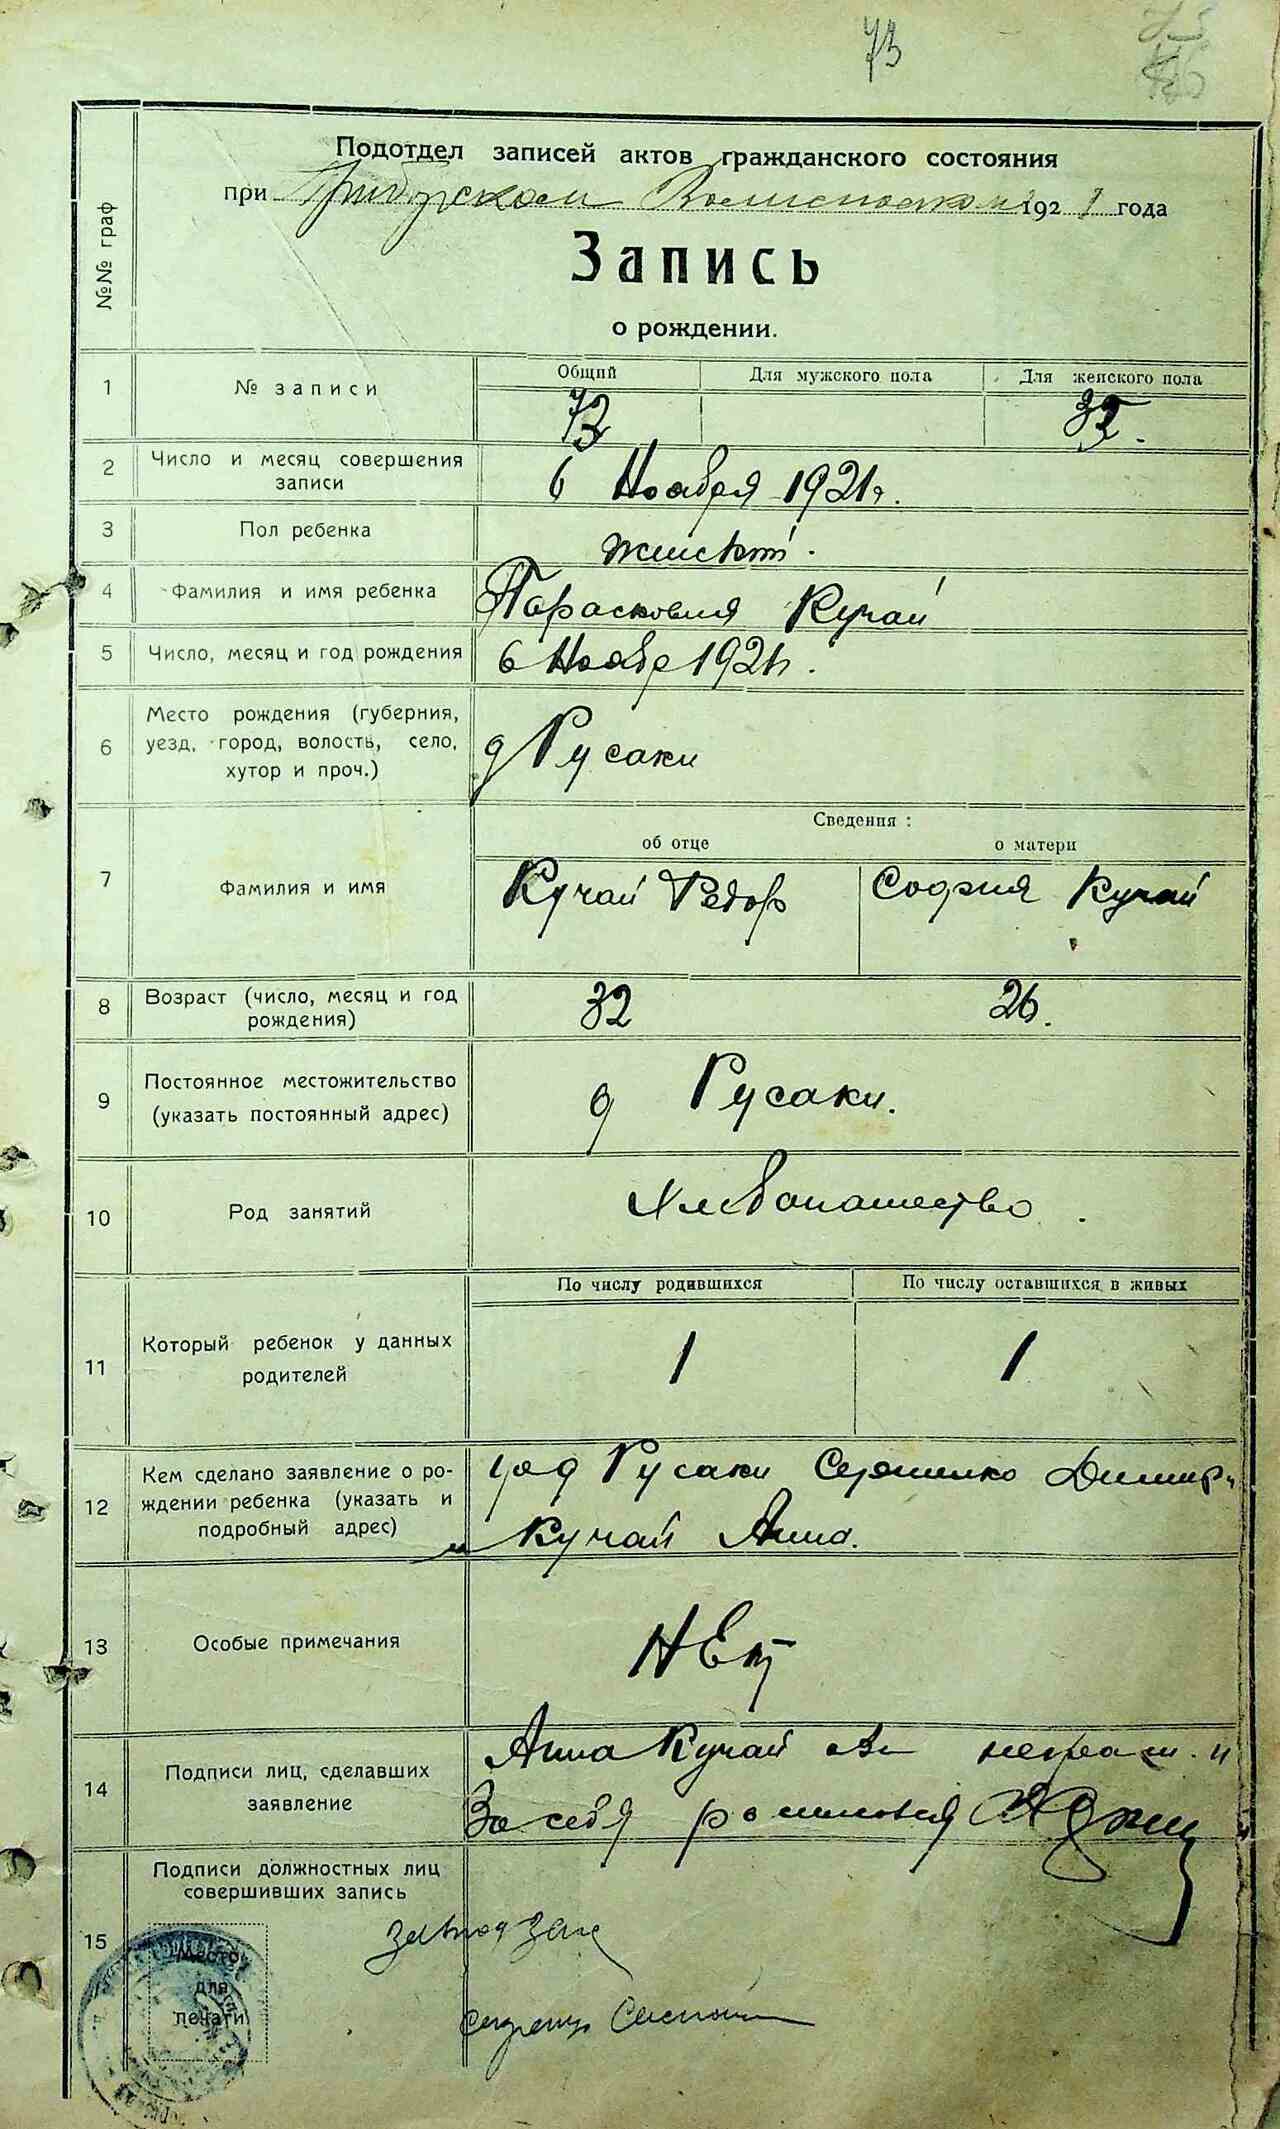 73
Подотдел записей актов гражданского состояния
при Волисполкоме 1921 года
Запись
о рождении.
№№ граф
1 № записи
Общий Для мужского пола Для женского пола
73
2 Число и месяц совершения
записи
6 Ноября 1921 г.
3 Пол ребенка
4 Фамилия и имя ребенка
Парасковия Кучай
5 Число, месяц и год рождения
6 Ноября 1921 г.
6 Место рождения (губерния,
уезд, город, волость, село,
хутор и проч.)
д Русаки
Сведения:
об отце о матери
7 Фамилия и имя
Кучай Федор София Кучай
8 Возраст (число, месяц и год
рождения)
32 26.
9 Постоянное местожительство
(указать постоянный адрес)
д Русаки.
10 Род занятий
Хлебопашество.
По числу родившихся По числу оставшихся в живых
11 Который ребенок у данных
родителей
1 1
12 Кем сделано заявление о ро-
ждении ребенка (указать и
подробный адрес)
Русаки
и Кучай Анна.
13 Особые примечания
НЕт
14 Подписи лиц, сделавших
заявление
Анна Кучай
За себя
15 Подписи должностных лиц
совершивших запись
Место
для
печати